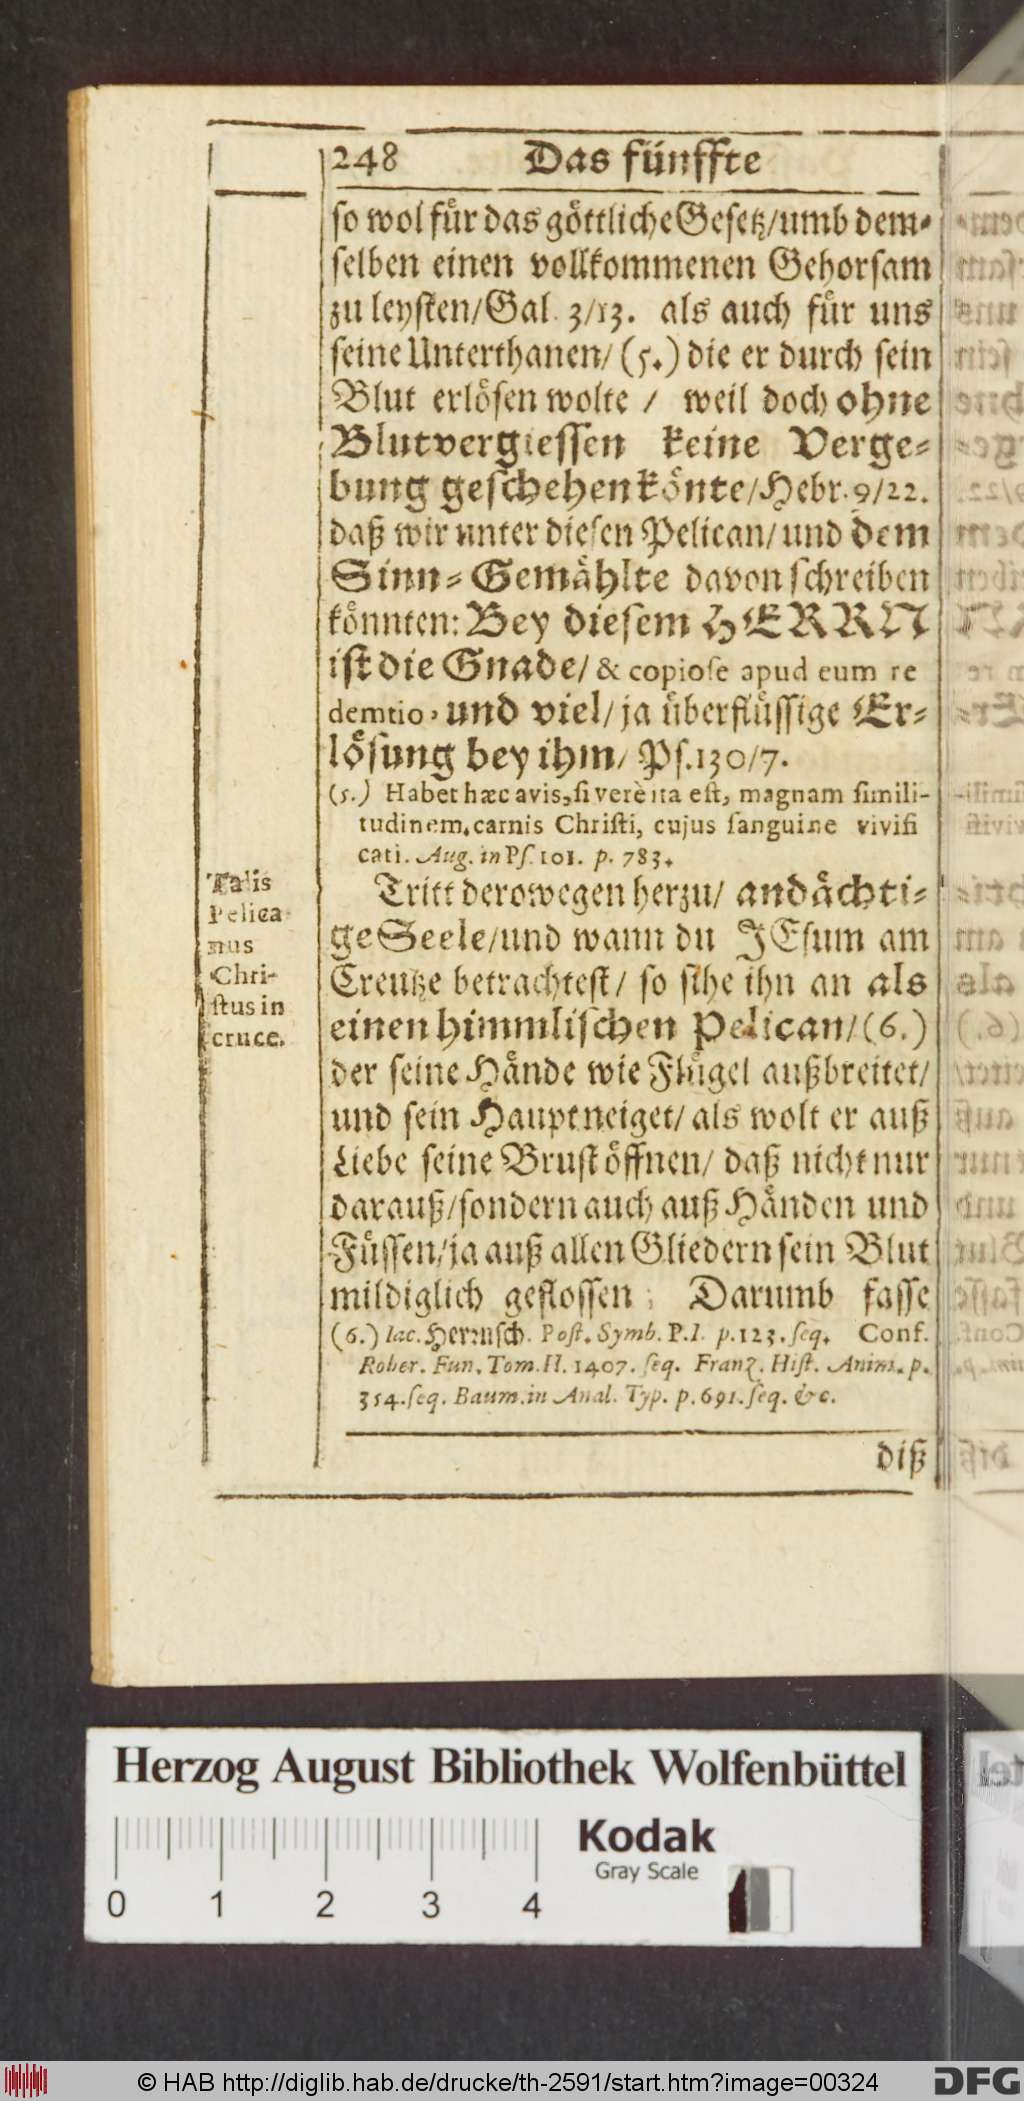 248 Das fünffte
so wol für das göttliche Gesetz/umb dem-
selben einen vollkommenen Gehorsam
zu leysten/Gal. 3/13. als auch für uns
seine Unterthanen/(5.) die er durch sein
Blut erlösen wolte / weil doch ohne
Blutvergiessen keine Verge-
bung geschehen könte/Hebr. 9/22.
daß wir unter diesen Pelican/und dem
Sinn-Gemählte davon schreiben
könnten: Bey diesem HERRN
ist die Gnade/ & copiose apud eum re
demtio, und viel/ja überflüssige Er-
lösung bey ihm/ Ps.130/7.
(5.) Habet hæc avis, si verè ita est, magnam simili-
tudinem carnis Christi, cujus sanguine vivifi
cati. Aug. in Ps. 101. p. 783.
Talis
Pelica
nus
Chri-
stus in
cruce.
Tritt derowegen herzu/ andächti-
ge Seele/und wann du JEsum am
Creutze betrachtest/ so sihe ihn an als
einen himmlischen Pelican/(6.)
der seine Hände wie Flügel außbreitet/
und sein Haupt neiget/als wolt er auß
Liebe seine Brust öffnen/ daß nicht nur
darauß/sondern auch auß Händen und
Füssen/ja auß allen Gliedern sein Blut
mildiglich geflossen; Darumb fasse
(6.) Iac. Post. Symb. P.I. p.123. seq. Conf.
Rober. Fun. Tom. II. 1407. seq. Franz. Hist. Anim. p.
354. seq. Baum. in Anal. Typ. p. 691. seq. &c.
diß
Herzog August Bibliothek Wolfenbüttel
Kodak
Gray Scale
0 1 2 3 4
© HAB http://diglib.hab.de/drucke/th-2591/start.htm?image=00324
DFG